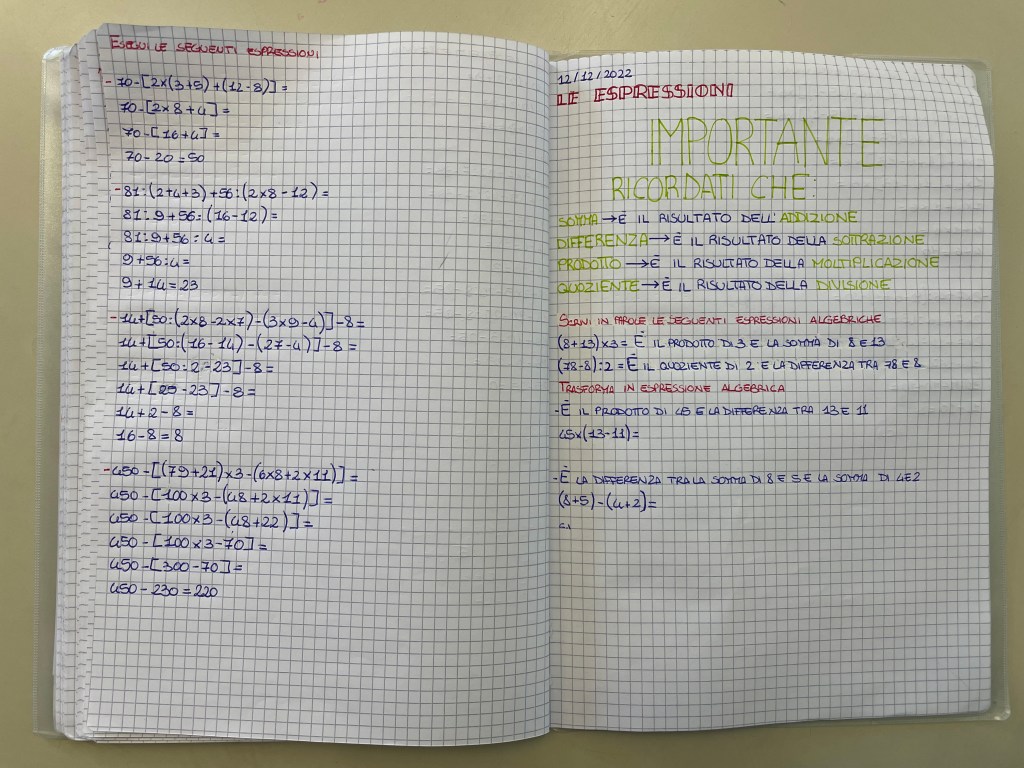 ESEGUI LE SEGUENTI ESPRESSIONI
-70-[2×(3+5)+(12-8)]=
70-[2×8+4]=
70-[16+4]=
70-20=50
-81:(2+4+3)+56:(2×8-12)=
81:9+56:(16-12)=
81:9+56:4=
9+56:4=
9+14=23
-14+[50:(2×8-2×7)-(3×9-4)]-8=
14+[50:(16-14)-(27-4)]-8=
14+[50:2-23]-8=
14+[25-23]-8=
14+2-8=
16-8=8
-450-[(79+21)×3-(6×8+2×11)]=
450-[100×3-(48+2×11)]=
450-[100×3-(48+22)]=
450-[100×3-70]=
450-[300-70]=
450-230=220
12/12/2022
LE ESPRESSIONI
IMPORTANTE
RICORDATI CHE:
SOMMA→È IL RISULTATO DELL'ADDIZIONE
DIFFERENZA→È IL RISULTATO DELLA SOTTRAZIONE
PRODOTTO→È IL RISULTATO DELLA MOLTIPLICAZIONE
QUOZIENTE→È IL RISULTATO DELLA DIVISIONE
SCRIVI IN PAROLE LE SEGUENTI ESPRESSIONI ALGEBRICHE
(8+13)×3= È IL PRODOTTO DI 3 E LA SOMMA DI 8 E 13
(78-8):2= È IL QUOZIENTE DI 2 E LA DIFFERENZA TRA 78 E 8
TRASFORMA IN ESPRESSIONE ALGEBRICA
-È IL PRODOTTO DI 45 E LA DIFFERENZA TRA 13 E 11
45×(13-11)=
-È LA DIFFERENZA TRA LA SOMMA DI 8 E 5 E LA SOMMA DI 4 E 2
(8+5)-(4+2)=